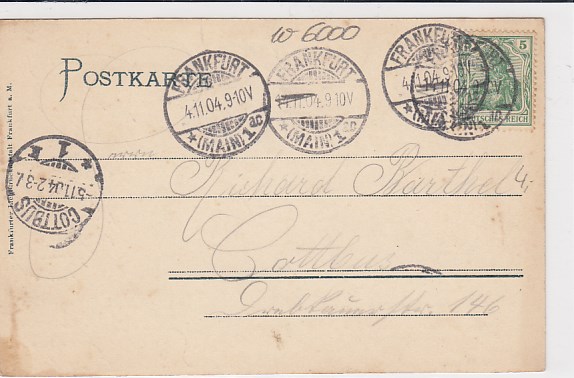 w 6000
POSTKARTE
FRANKFURT
4.11.04.9-10V
*(MAIN)1ac
FRANKFURT
4.11.04.9-10V
*(MAIN)1ac
FRANKFURT
4.11.04.9-10V
*(MAIN)
5
DEUTSCHES REICH
Herrn
Richard Barthel
4,-
Cottbus
Drebkauerstr. 146
COTTBUS
5.11.04.2-3
*1
Frankfurt a. M.